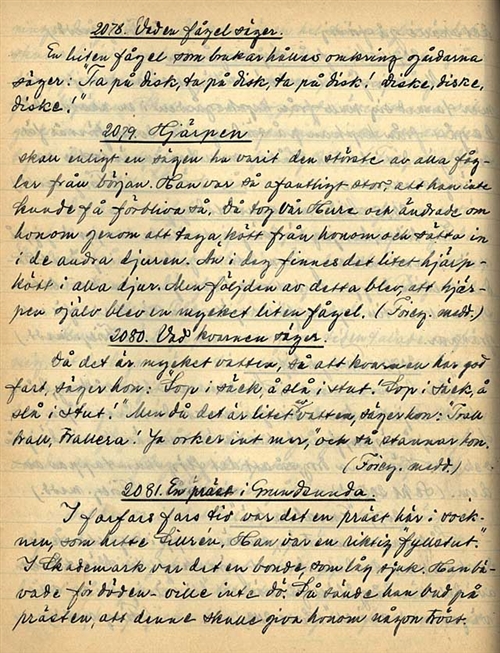 2078. Vad en fågel säger.
En liten fågel som brukar hållas omkring gårdarna
säger: "Ta på disk, ta på disk, ta på disk! Diske, diske,
diske!"
2079. Hjärpen
skall enligt en sägen ha varit den största av alla fåg-
lar från början. Han var så ofantligt stor, att han inte
kunde få förbliva så. Då tog Vår Herre och ändrade om
honom genom att taga kött från honom och sätta in
i de andra djuren. Än i dag finnes det litet hjärp-
kött i alla djur. Men följden av detta blev, att hjär-
pen själv blev en mycket liten fågel. (Föreg. medd.)
2080. Vad kvarnen säger.
Då det är mycket vatten, så att kvarnen har god
fart, säger hon: "Sop i säck, å slå i stut! Sop i säck, å
slå i stut!" Men då det är litet vatten, säger hon: "Trall
trall, trallera! Ja orker int mer," och så stannar hon.
(Föreg. medd.)
2081. En präst i Grundsunda.
I farfars fars tid var det en präst här i sock-
nen, som hette Lillren. Han var en riktig "fyllstut".
I Skademark var det en bonde, som låg sjuk. Han bä-
vade för döden - ville inte dö. Så sände han bud på
prästen, att denne skulle giva honom någon tröst.